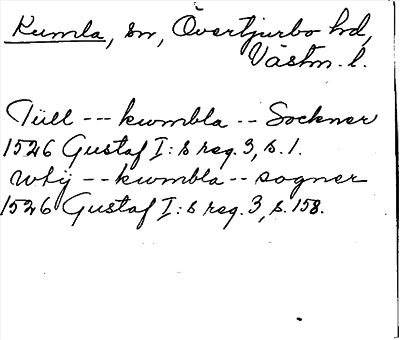 Kumla, sn, Övertjurbo hd,
Västm. l.
Tüll --- kwmbla -- Sockner
1526 Gustaf I:s reg. 3, s. 1.
wthÿ -- kwmbla -- sogner
1526 Gustaf I:s reg. 3, s. 158.